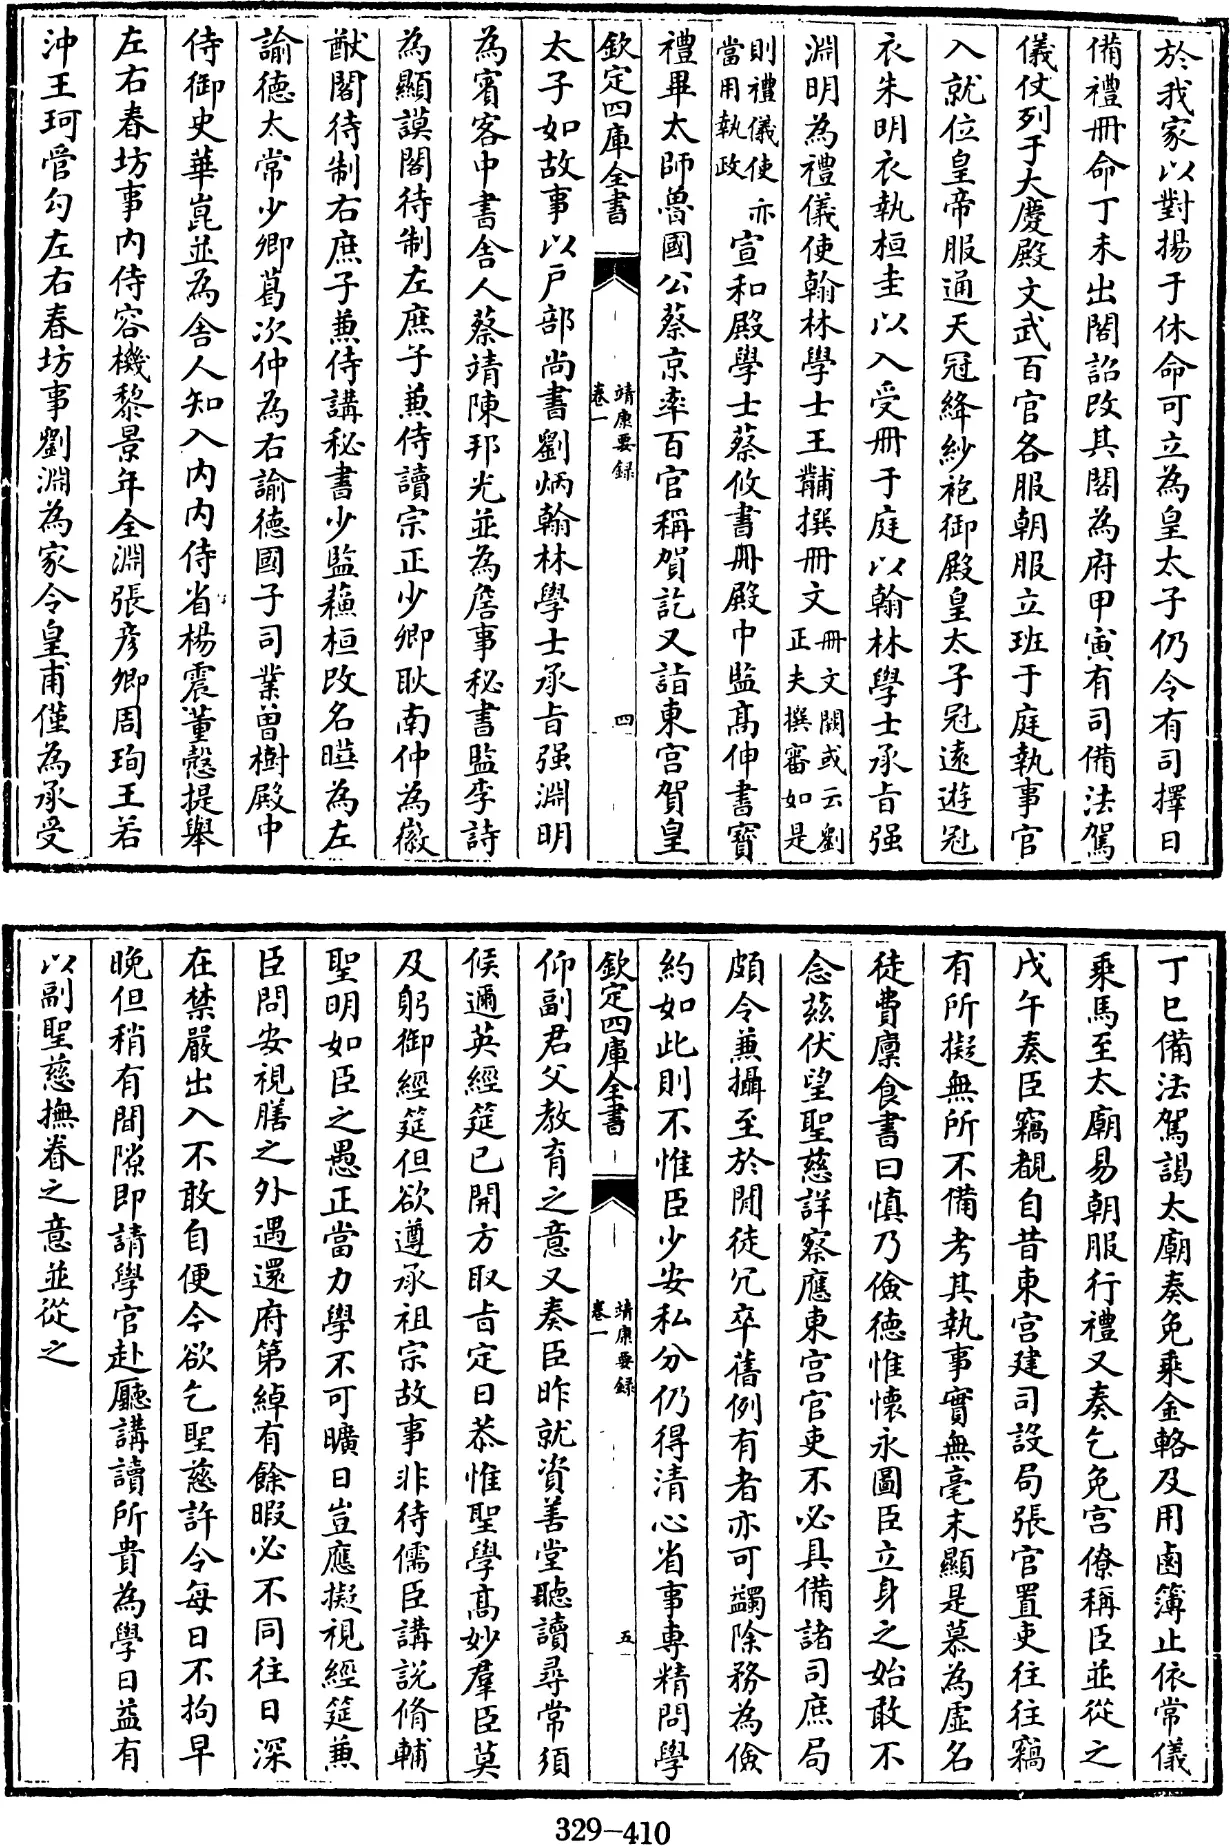 於我家以對揚于休命可立為皇太子仍令有司擇日
備禮冊命丁未出閤詔改其閤為府甲寅有司備法駕
儀仗列于大慶殿文武百官各服朝服立班于庭執事官
入就位皇帝服通天冠絳紗袍御殿皇太子冠遠遊冠
衣朱明衣執桓圭以入受冊于庭以翰林學士承旨强
淵明為禮儀使翰林學士王黼撰冊文冊文闕或云劉正夫撰審如是
則禮儀使亦當用執政宣和殿學士蔡攸書冊殿中監高伸書寶
禮畢太師魯國公蔡京率百官稱賀訖又詣東宮賀皇
欽定四庫全書 靖康要録 卷一 四
太子如故事以戶部尚書劉炳翰林學士承旨强淵明
為賓客中書舍人蔡靖陳邦光並為詹事秘書監李詩
為顯謨閣待制左庶子兼侍讀宗正少卿耿南仲為徽
猷閣待制右庶子兼侍講秘書少監蘓桓改名㬇為左
諭德太常少卿葛次仲為右諭德國子司業曽樹殿中
侍御史華崑並為舍人知入内内侍省楊震董慤提舉
左右春坊事内侍容機黎景年全淵張彦卿周珣王若
沖王珂管勾左右春坊事劉淵為家令皇甫僅為承受
丁巳備法駕謁太廟奏免乘金輅及用鹵簿止依常儀
乘馬至太廟易朝服行禮又奏乞免宮僚稱臣並從之
戊午奏臣竊覩自昔東宮建司設局張官置吏往往竊
有所擬無所不備考其執事實無毫末顯是慕為虛名
徒費廩食書曰慎乃儉徳惟懷永圖臣立身之始敢不
念兹伏望聖慈詳察應東宮官吏不必具備諸司庶局
頗令兼攝至於閒徒冗卒舊例有者亦可蠲除務為儉
約如此則不惟臣少安私分仍得清心省事專精問學
欽定四庫全書 靖康要録 卷一 五
仰副君父教育之意又奏臣昨就資善堂聽讀尋常須
候邇英經筵已開方取旨定日恭惟聖學高妙羣臣莫
及躬御經筵但欲遵承祖宗故事非待儒臣講説脩輔
聖明如臣之愚正當力學不可曠日豈應擬視經筵兼
臣問安視膳之外遇還府第綽有餘暇必不同往日深
在禁嚴出入不敢自便今欲乞聖慈許令每日不拘早
晚但稍有間隙即請學官赴廳講讀所貴為學日益有
以副聖慈撫眷之意並從之
329-410